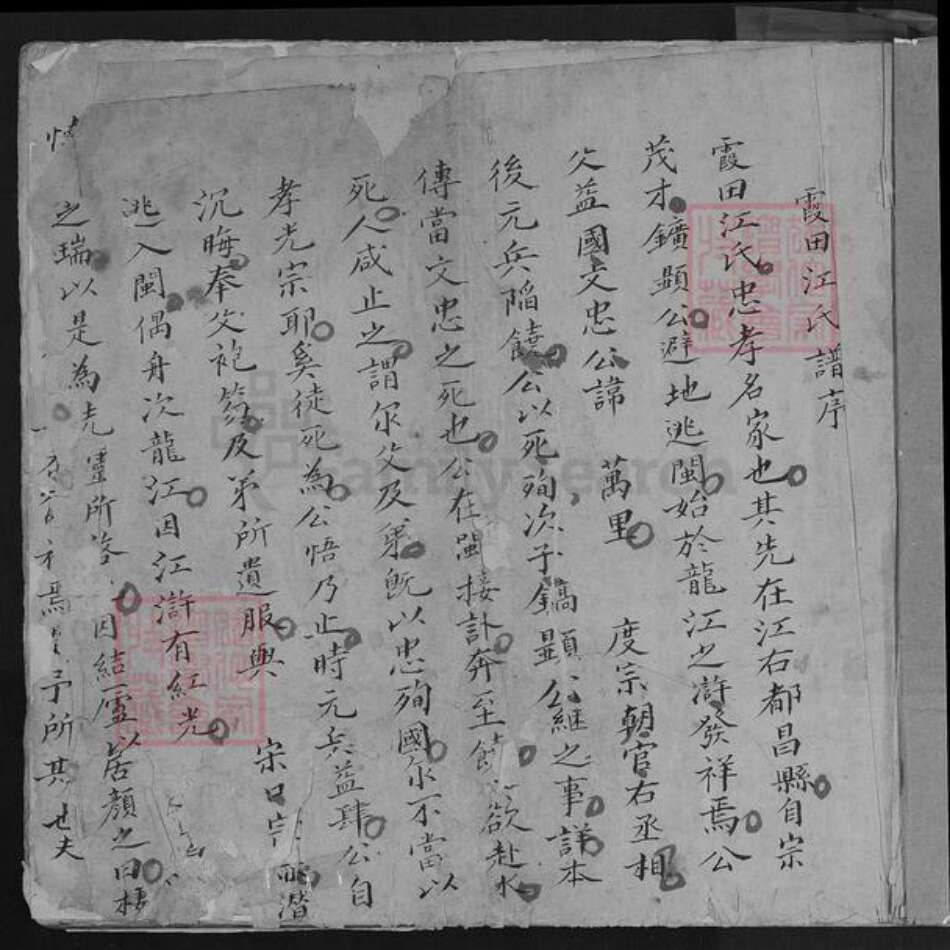 霞田江氏譜序
霞田江氏忠孝名家也其先在江右都昌縣自宗
茂才鑛顕公避地逃閩始於龍江之滸發祥焉公
父益國文忠公諱 萬里 度宗朝官右丞相
後元兵陷饒公以死殉次子鎬顕公継之事詳本
傳當文忠之死也公在閩接訃奔至饒欲赴水
死人咸止之謂尔父及弟既以忠殉國尓不當以
孝光宗耶奚徒死為公悟乃止時元兵益肆公自
沉晦奉父袍笏及弟所遺服與 宋 潜
逃入閩偶舟次龍江因江滸有紅光
之瑞以是為先靈所 因結廬以居顔之曰
焉 予所其世夫